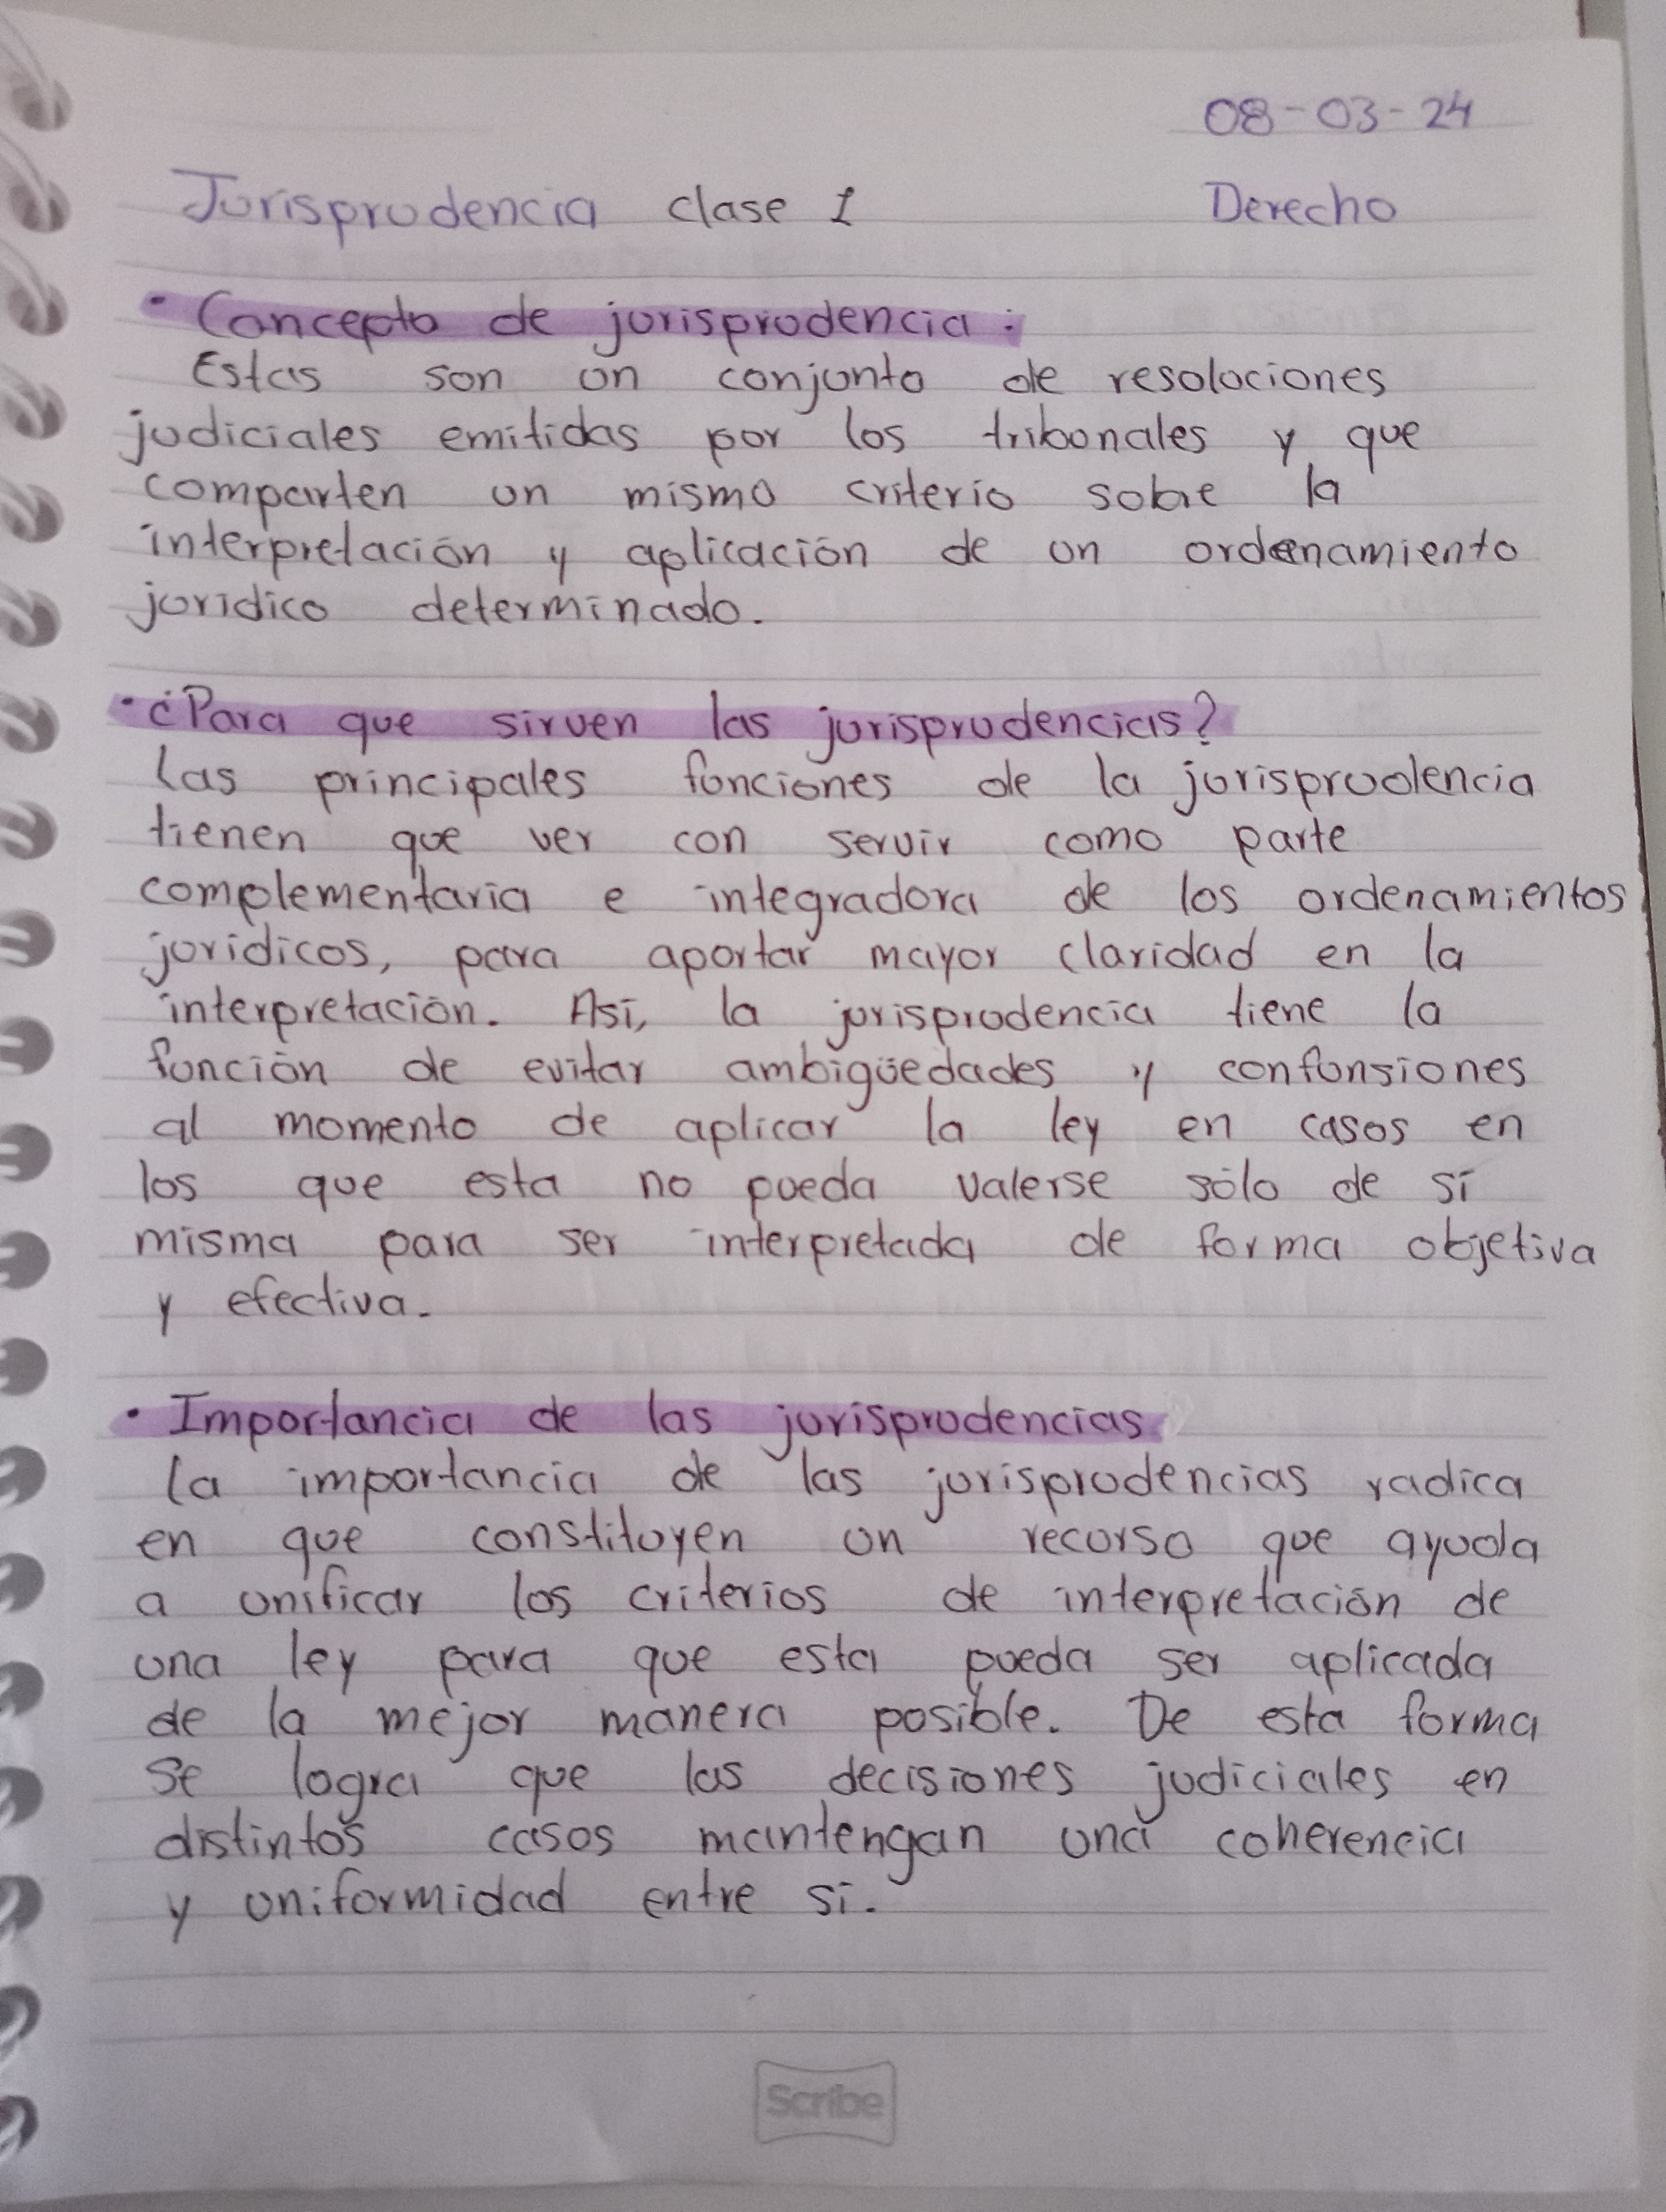 08-03-24
Jurisprudencia clase 1 Derecho
• Concepto de jurisprudencia:
Estas son un conjunto de resoluciones
judiciales emitidas por los tribunales y que
comparten un mismo criterio sobre la
interpretación y aplicación de un ordenamiento
jurídico determinado.
• ¿Para que sirven las jurisprudencias?
Las principales funciones de la jurisprudencia
tienen que ver con servir como parte
complementaria e integradora de los ordenamientos
jurídicos, para aportar mayor claridad en la
interpretación. Así, la jurisprudencia tiene la
función de evitar ambigüedades y confunsiones
al momento de aplicar la ley en casos en
los que esta no pueda valerse sólo de sí
misma para ser interpretada de forma objetiva
y efectiva.
• Importancia de las jurisprudencias
La importancia de las jurisprudencias radica
en que constituyen un recurso que ayuda
a unificar los criterios de interpretación de
una ley para que esta pueda ser aplicada
de la mejor manera posible. De esta forma
se logra que las decisiones judiciales en
distintos casos mantengan una coherencia
y uniformidad entre sí.
Scribe